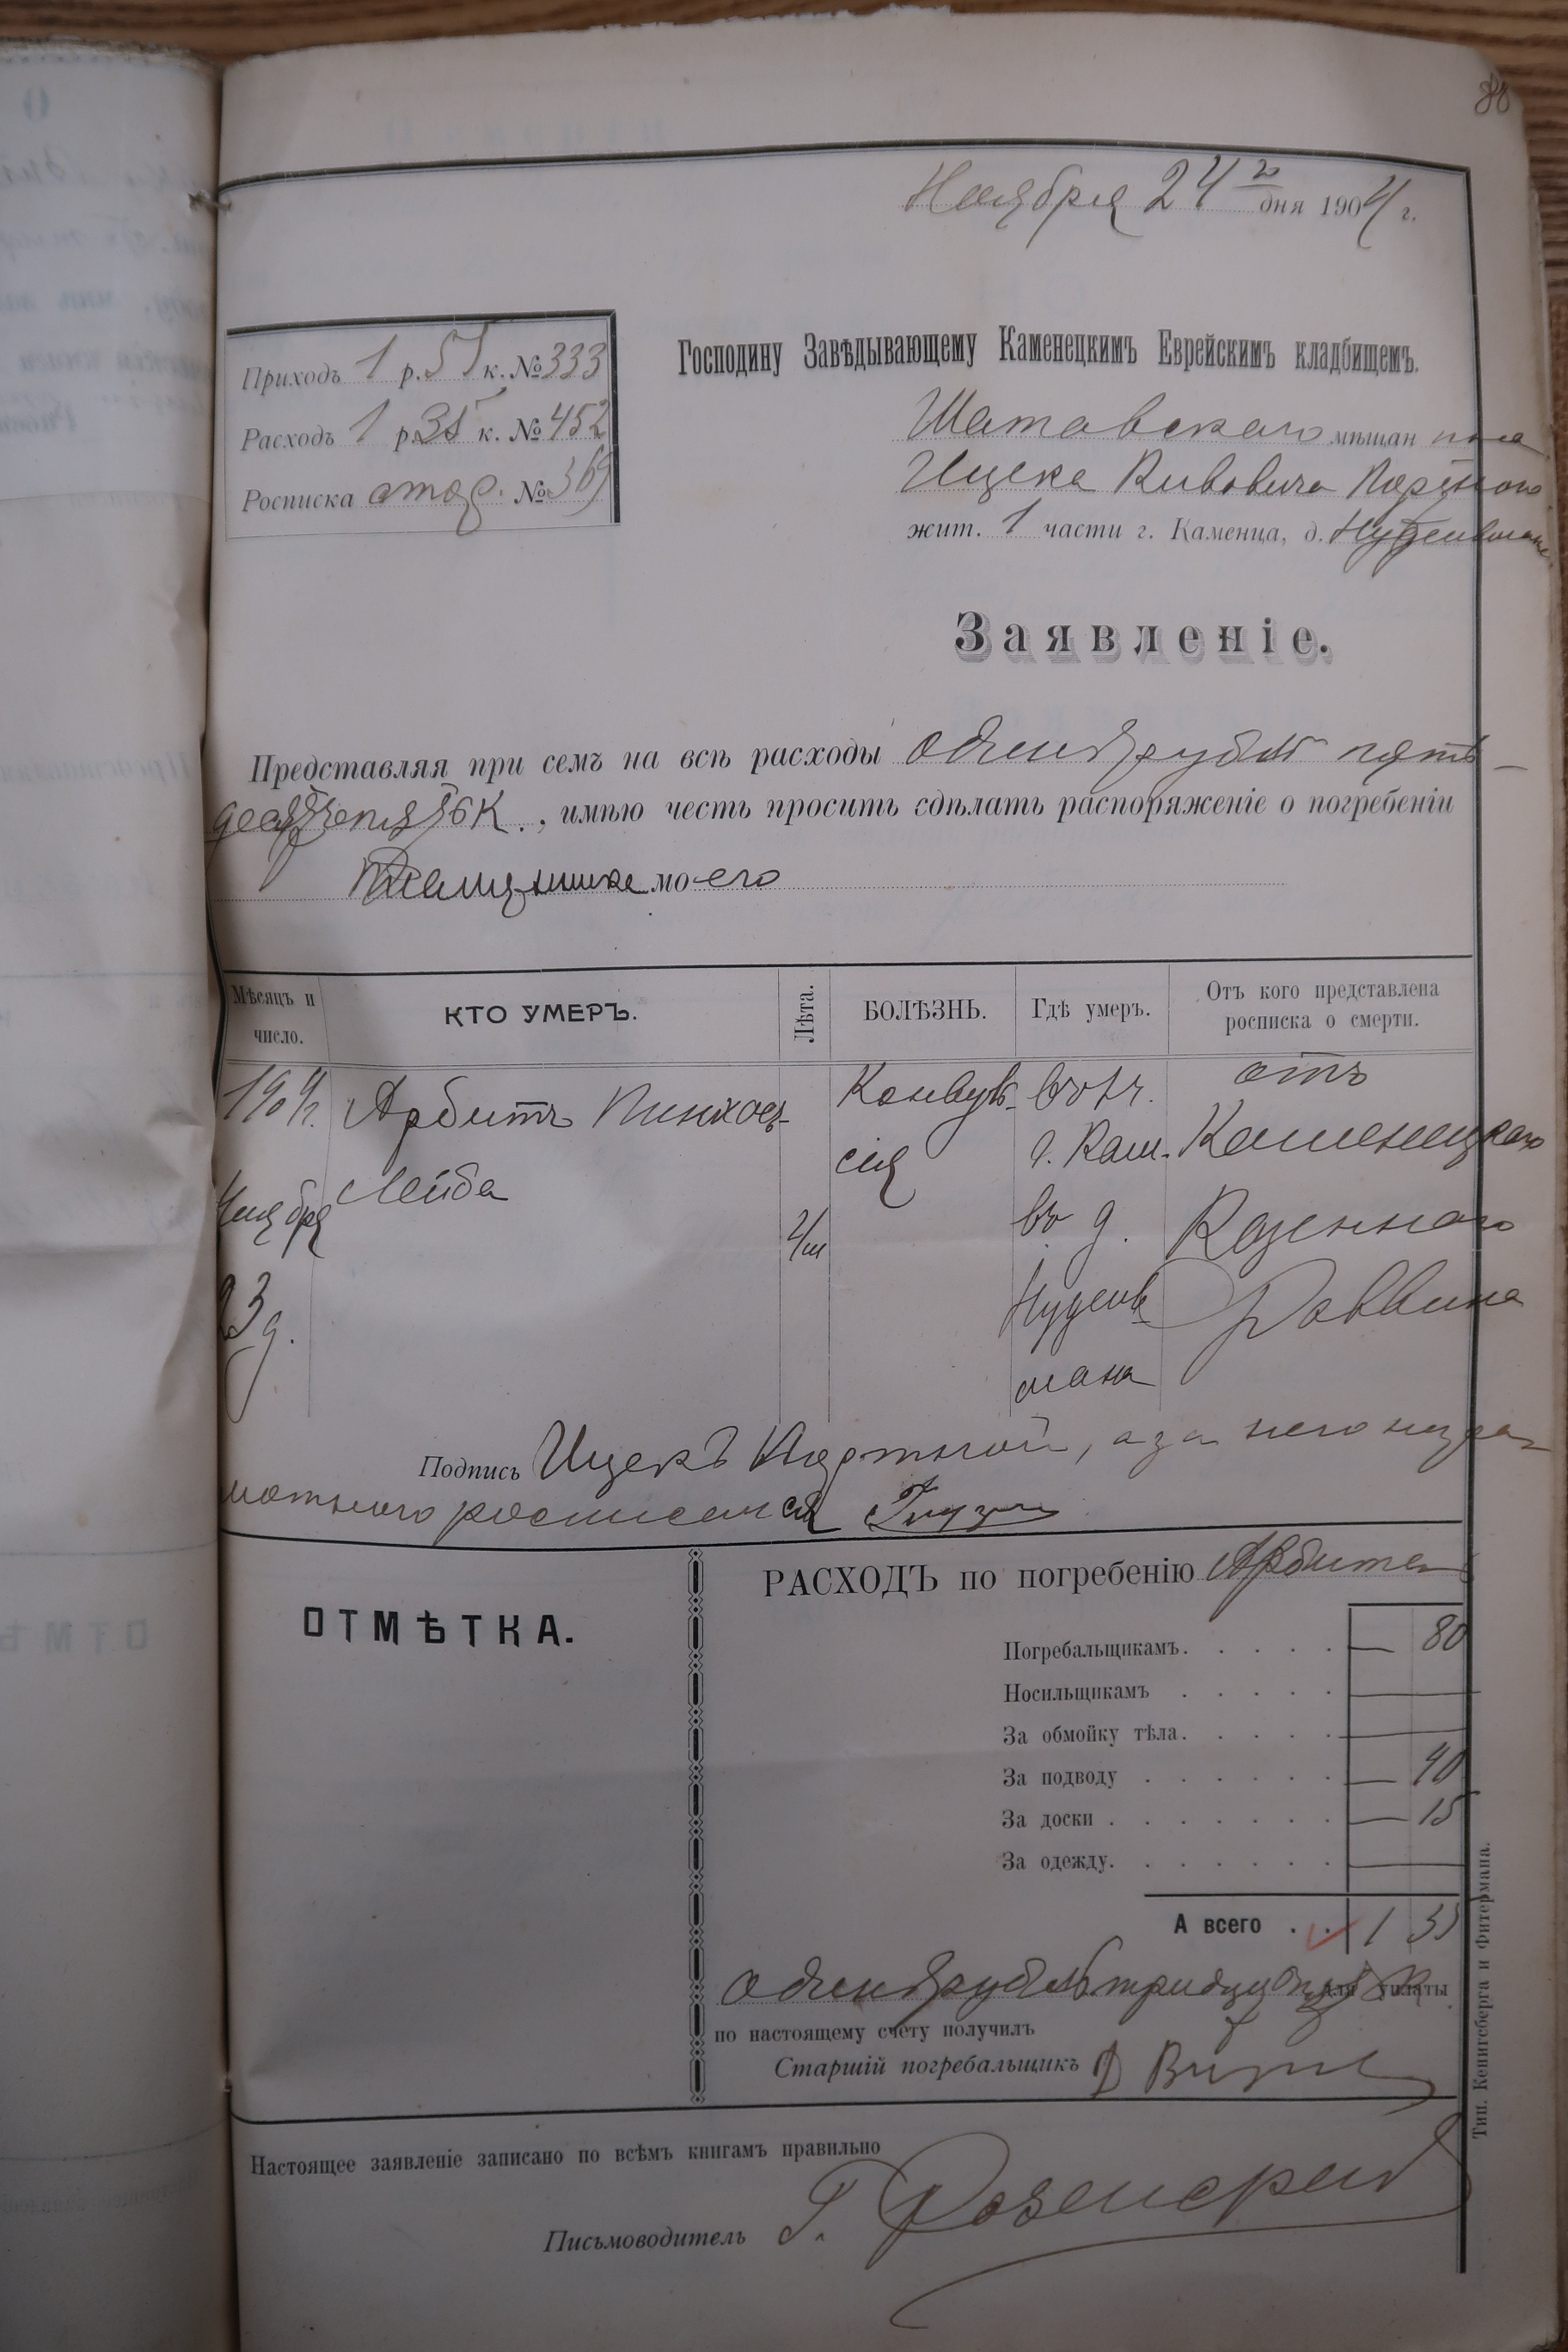 88
Ноября 24 го дня 1904 г.
Приходъ 1 р. 55 к. № 333
Расходъ 1 р. 35 к. № 452
Росписка № 369
Господину Завѣдывающему Каменецкимъ Еврейскимъ кладбищемъ.
Шатавскаго мѣщан ина
Ицека Кивовича Портного
жит. 1 части г. Каменца, д. Нудельмана
Заявленіе.
Представляя при семъ на всѣ расходы одинъ рубль пять-
десятъ К., имѣю честь просить сдѣлать распоряженіе о погребеніи
моего
Мѣсяцъ и число.
КТО УМЕРЪ.
Лѣта.
БОЛѢЗНЬ.
Гдѣ умеръ.
Отъ кого представлена росписка о смерти.
1904 г. Арбитъ Пинхосъ- Конвуль- въ 1 ч. отъ
Ноября Лейба сія г. Кам. Каменецкаго
въ д. Казеннаго
23 д. Нудель- Раввина
мана
Подпись Ицекъ Портной, а за него неграмотнаго росписался
ОТМѢТКА.
РАСХОДЪ по погребенію Арбита
Погребальщикамъ. — 80
Носильщикамъ —
За обмойку тѣла. —
За подводу — 40
За доски — 15
За одежду. —
А всего 1 35
одинъ рубль тридцать пять К для уплаты
по настоящему счету получилъ
Старшій погребальщикъ
Настоящее заявленіе записано по всѣмъ книгамъ правильно
Письмоводитель Г.
Тип. Кенигсберга и Фитермана.